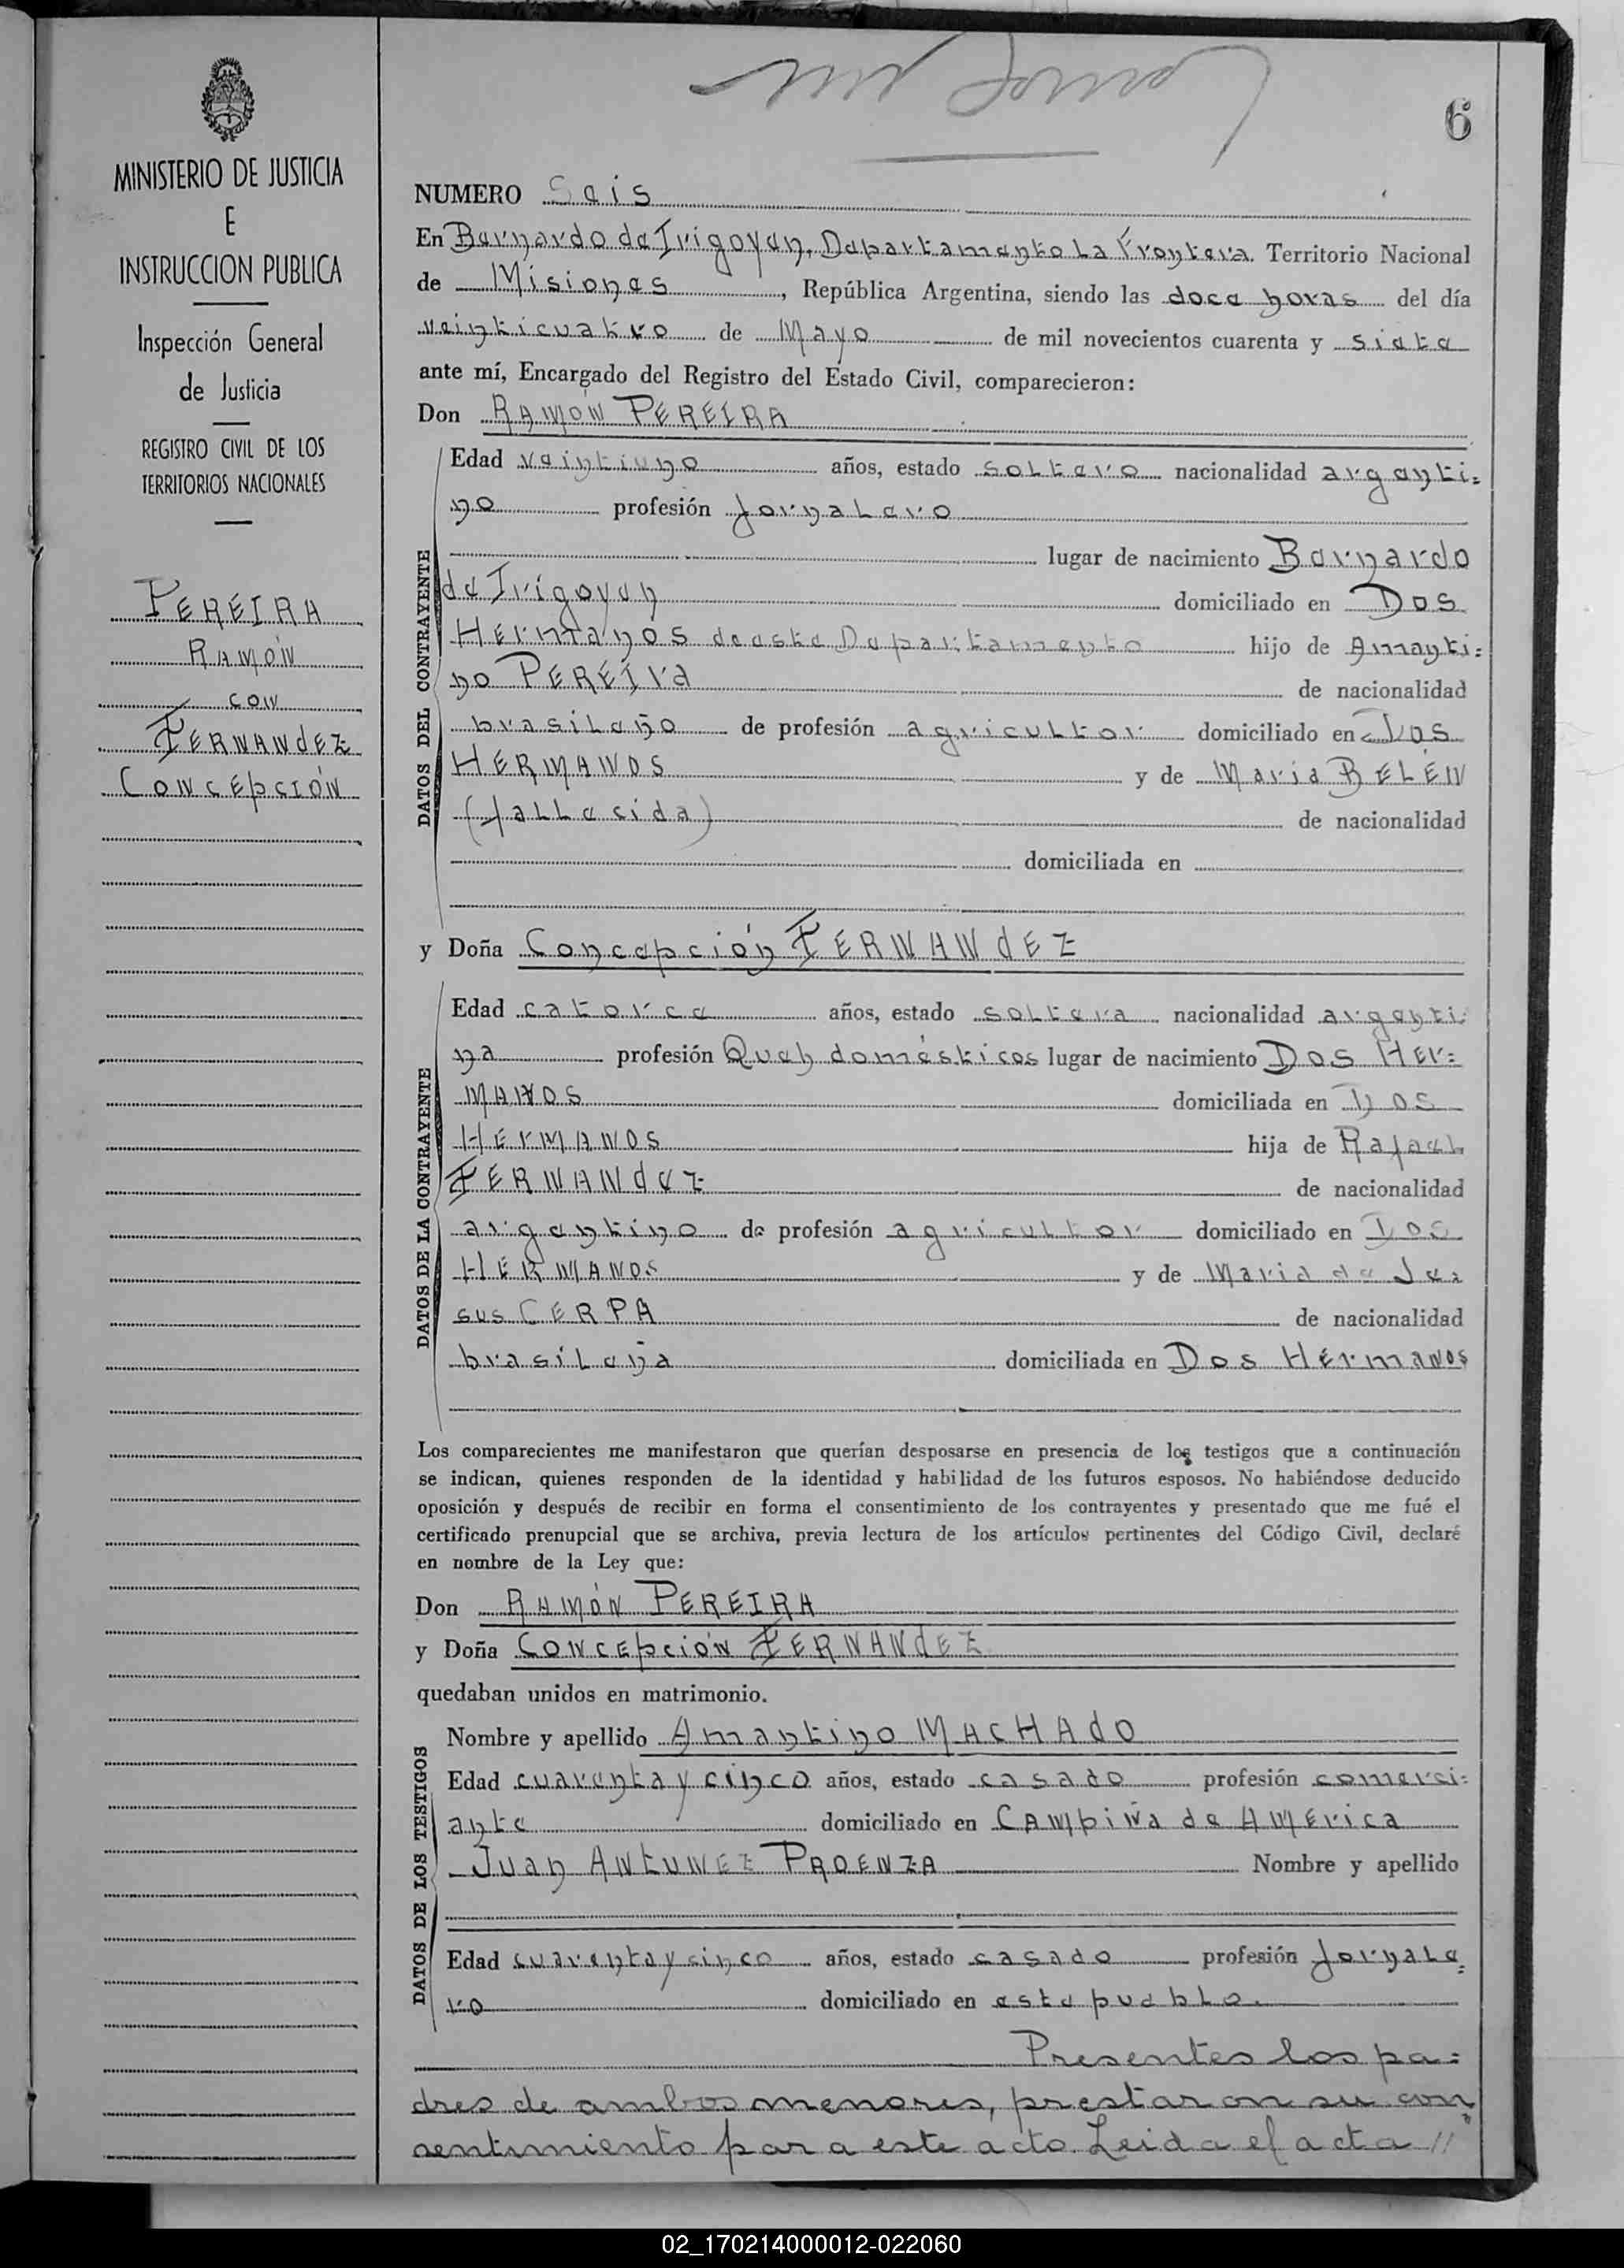 6
MINISTERIO DE JUSTICIA
E
INSTRUCCION PUBLICA
Inspección General
de Justicia
REGISTRO CIVIL DE LOS
TERRITORIOS NACIONALES
PEREIRA
RAMÓN
CON
FERNANdEZ
CONCEpCIÓN
NUMERO Seis
En Bernardo de Irigoyen, Departamento La Frontera. Territorio Nacional
de Misiones, República Argentina, siendo las doce horas del día
veinticuatro de Mayo de mil novecientos cuarenta y siete
ante mí, Encargado del Registro del Estado Civil, comparecieron:
Don RAMÓN PEREIRA
DATOS DEL CONTRAYENTE
Edad veintiuno años, estado soltero nacionalidad argenti=
no profesión Jornalero
lugar de nacimiento Bernardo
de Irigoyen domiciliado en Dos
Hermanos de este Departamento hijo de Amanti=
no PEREIra de nacionalidad
brasileño de profesión agricultor domiciliado en Dos
HERMANOS y de Maria BELÉN
(fallecida) de nacionalidad
domiciliada en
y Doña Concepción FERNANdEZ
DATOS DE LA CONTRAYENTE
Edad catorce años, estado soltera nacionalidad argenti
na profesión Queh domésticos lugar de nacimiento Dos HEr=
MANOS domiciliada en Dos
HErMANOS hija de Rafael
FERNANdez de nacionalidad
argentino de profesión agricultor domiciliado en Dos
HERMANOS y de Maria de Je=
sus CERPA de nacionalidad
brasileña domiciliada en Dos HErmaNos
Los comparecientes me manifestaron que querían desposarse en presencia de los testigos que a continuación
se indican, quienes responden de la identidad y habilidad de los futuros esposos. No habiéndose deducido
oposición y después de recibir en forma el consentimiento de los contrayentes y presentado que me fué el
certificado prenupcial que se archiva, previa lectura de los artículos pertinentes del Código Civil, declaré
en nombre de la Ley que:
Don RAMÓN PEREIRA
y Doña CONCEpción FERNANdEZ
quedaban unidos en matrimonio.
DATOS DE LOS TESTIGOS
Nombre y apellido Amantino MACHAdO
Edad cuarenta y cinco años, estado casado profesión comerci=
ante domiciliado en CAMpiÑa de AMErica
Juan ANtUNEZ PROENZA Nombre y apellido
Edad cuarenta y cinco años, estado casado profesión Jornale=
ro domiciliado en este pueblo.
Presentes los pa=
dres de ambos menores, prestaron su con
sentimiento para este acto. Leida el acta //
02_170214000012-022060